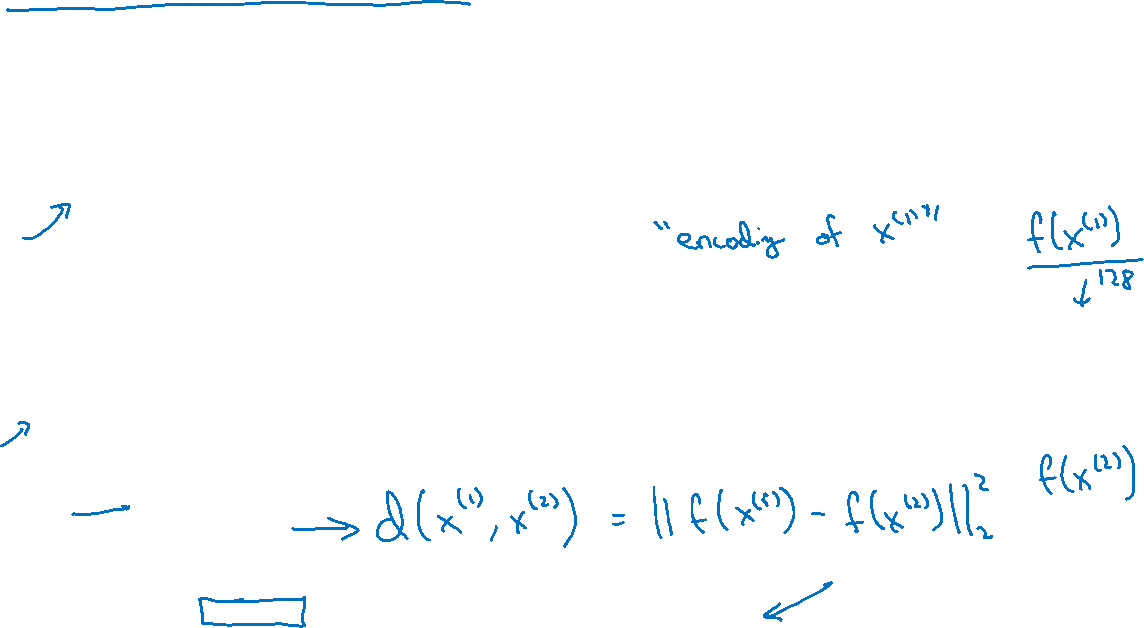 "encoding of x⁽¹⁾" f(x⁽¹⁾)
128
f(x⁽²⁾)
d(x⁽¹⁾, x⁽²⁾) = ||f(x⁽¹⁾) - f(x⁽²⁾)||₂²